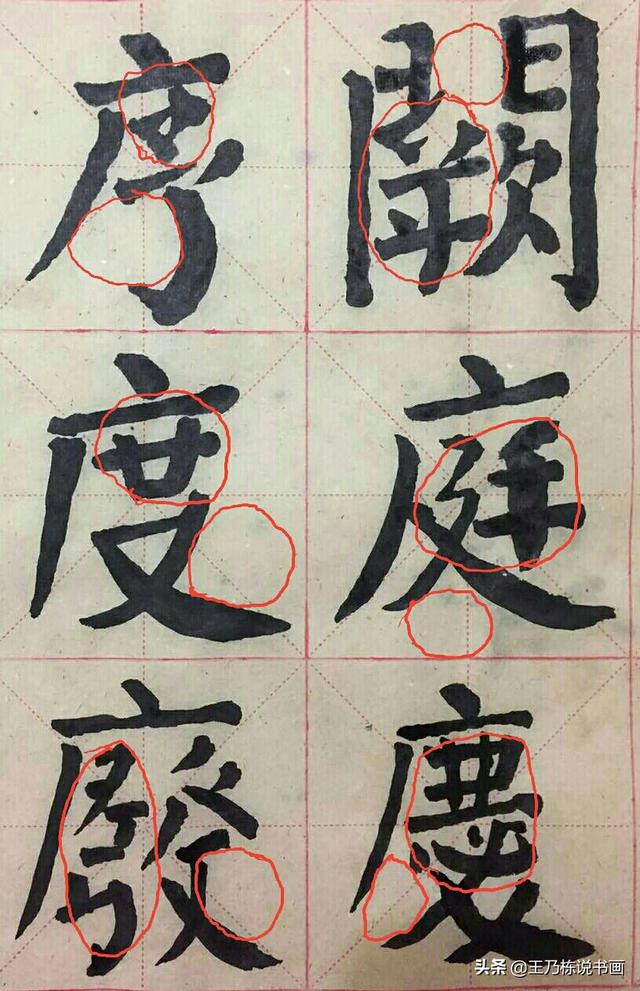 闕庭慶
序度廢
头条 @王乃栋说书画